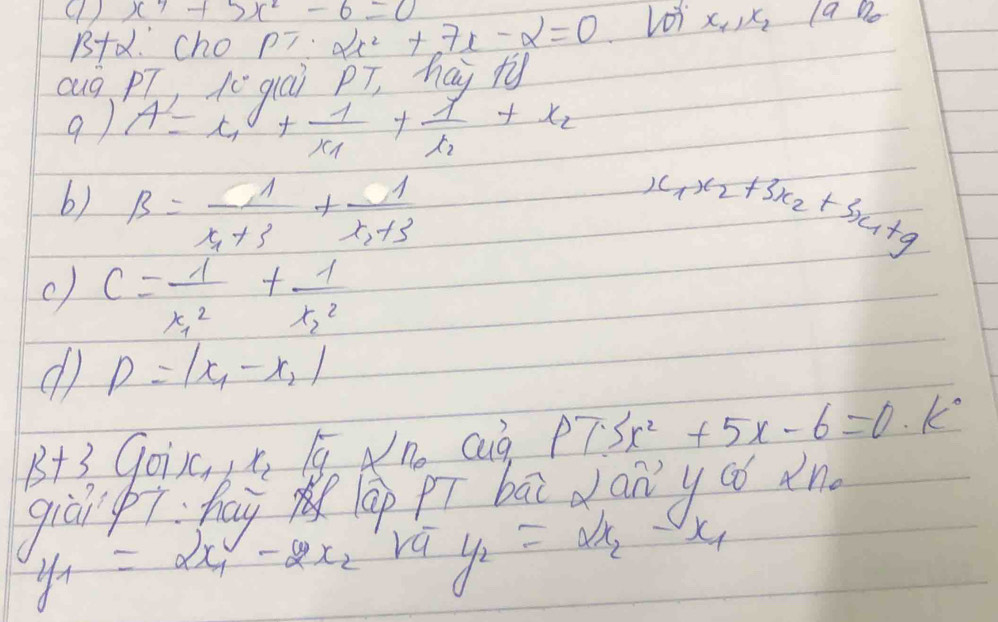 d) x⁴ + 5x² - 6 = 0
Bt2: Cho PT: 2x² + 7x - 2 = 0. Với x₁, x₂ là n₀
của PT, ko giải PT, hãy
a) A = x₁ + 1/x₁ + 1/x₂ + x₂
b) B = 1/(x₁+3) + 1/(x₂+3)
x₁x₂ + 3x₂ + 3x₁ + 9
c) C = 1/x₁² + 1/x₂²
d) D = |x₁ - x₂|
Bt3 Gọi x₁, x₂ là 2n₀ của PT: 3x² + 5x - 6 = 0. K°
giải PT. hãy lập PT bậc 2 ẩn y có 2n₀
y₁ = 2x₁ - x₂ và y₂ = 2x₂ - x₁